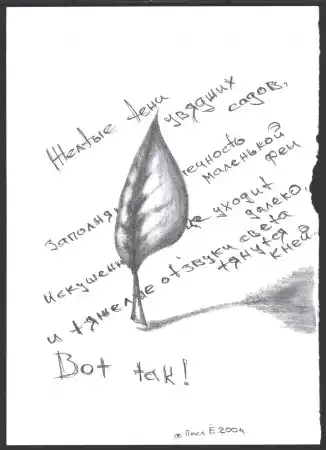 Желтые тени увядших
садов,
Заполня ечность
маленькой
феи
Искушенн це уходит
далеко,
и тяжелые отзвуки света
тянутся
к ней.
Вот так!
Е.2004